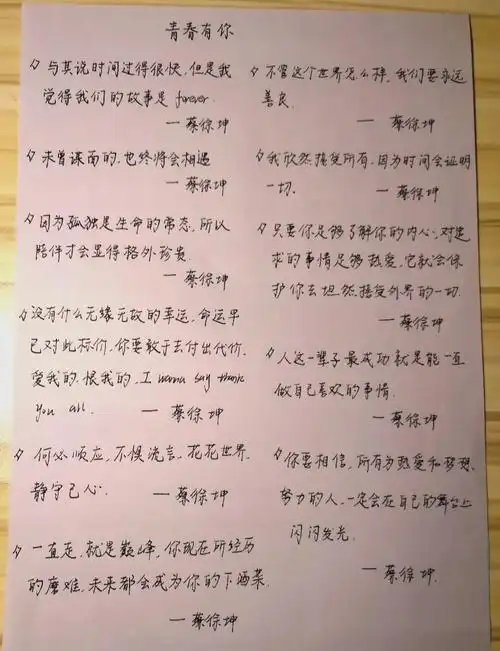 青春有你
与其说时间过得很快，但是我
觉得我们的故事是 forever.
—蔡徐坤
未曾谋面的，也终将会相遇
—蔡徐坤
因为孤独是生命的常态，所以
陪伴才会显得格外珍贵.
—蔡徐坤
没有什么无缘无故的幸运，命运早
已对此标价，你要敢于去付出代价.
爱我的，恨我的，I wanna say thank
you all. —蔡徐坤
何必顺应，不惧流言，花花世界，
静守己心. —蔡徐坤
一直走，就是巅峰，你现在所经历
的磨难，未来都会成为你的下酒菜.
—蔡徐坤
不管这个世界怎么样，我们要永远
善良.
—蔡徐坤
我欣然接受所有，因为时间会证明
一切. —蔡徐坤
只要你足够了解你的内心，对追
求的事情足够热爱，它就会保
护你去坦然接受外界的一切.
—蔡徐坤
人这一辈子最成功就是能一直
做自己喜欢的事情.
—蔡徐坤
你要相信，所有为热爱和梦想
努力的人，一定会在自己的舞台上
闪闪发光.
—蔡徐坤.